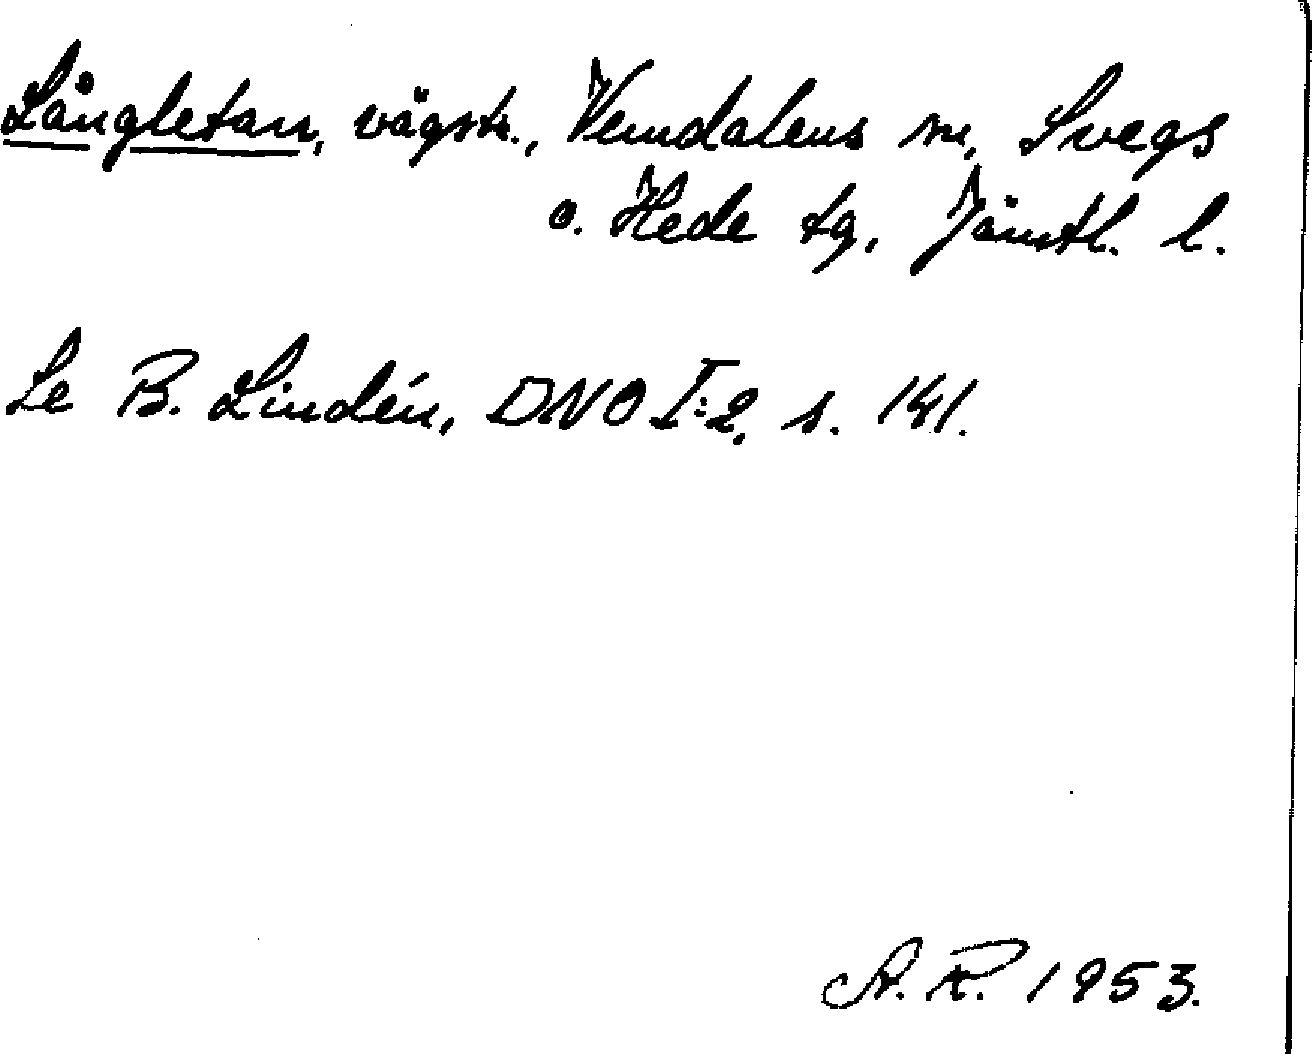 Långletan, vägstr., Vemdalens sn, Svegs
o. Hede tg, Jämtl. l.
Se B. Lindén, DNO I:2, s. 141.
A. R. 1953.